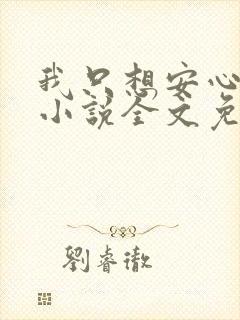 我只想安心
小说全文免
劉睿徹